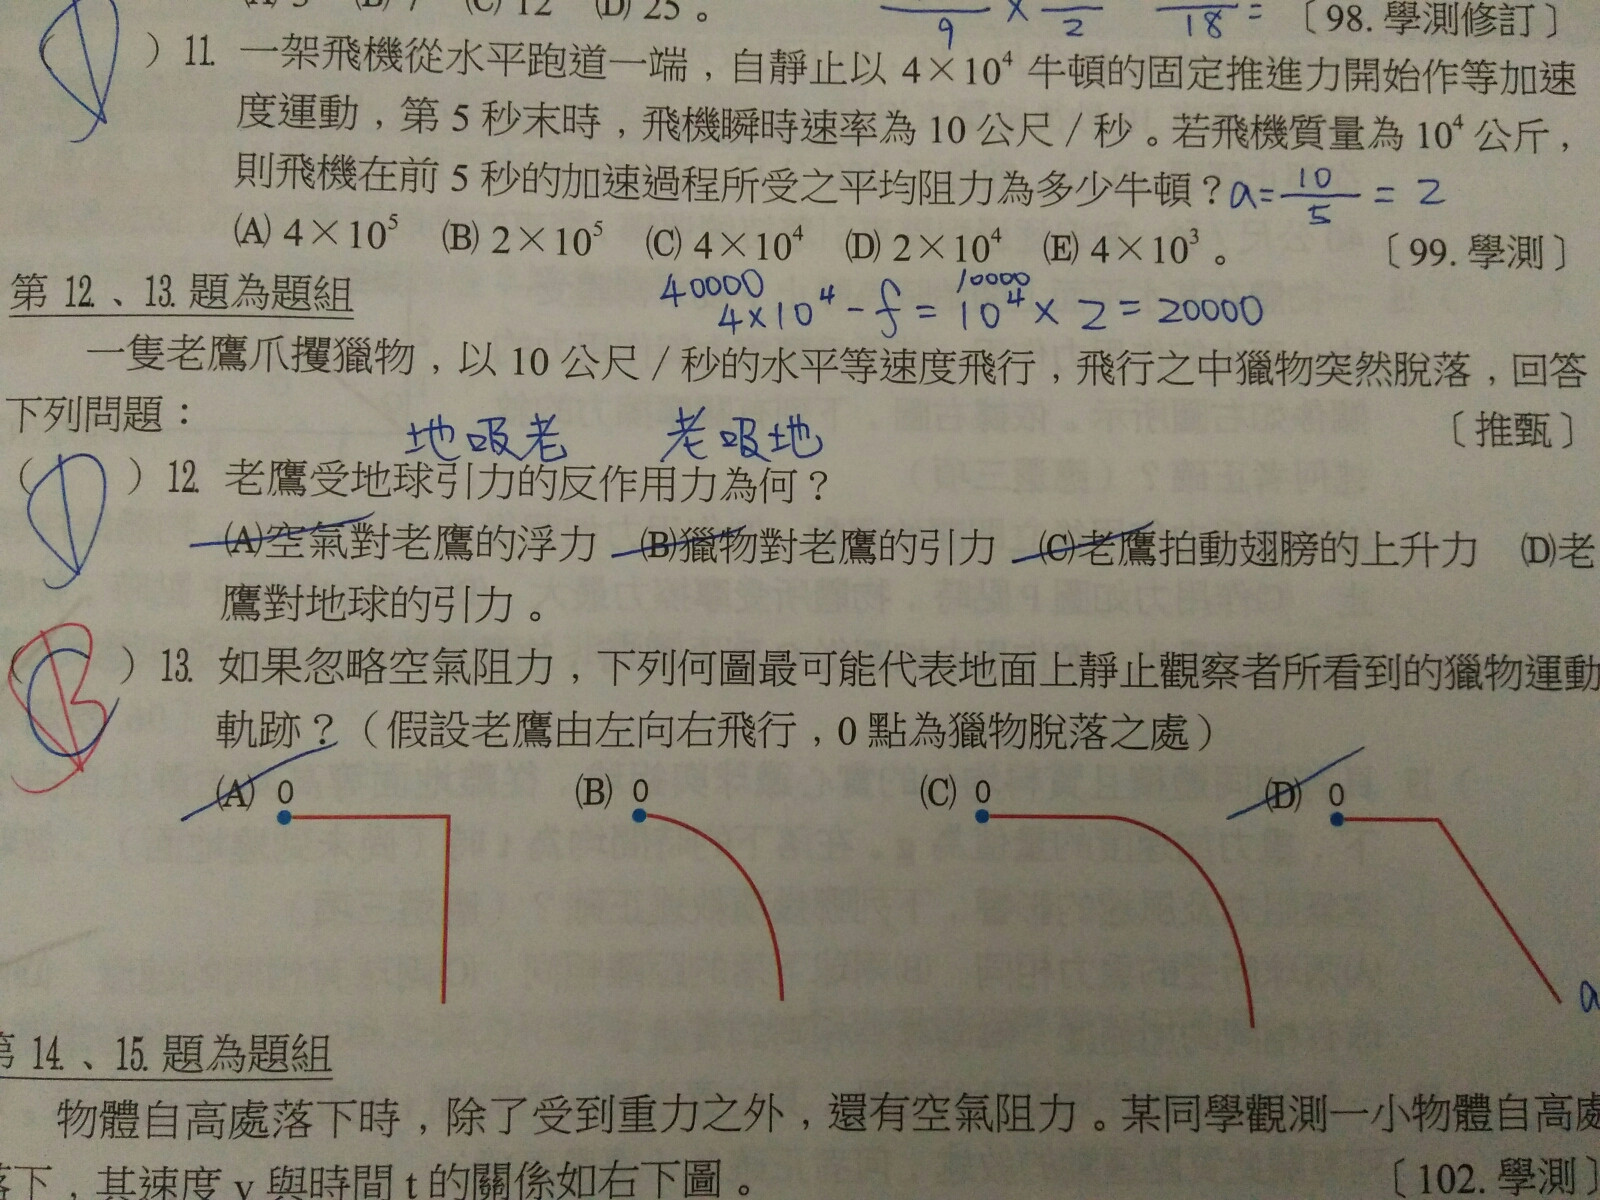 (A) 5 (B) 7 (C) 12 (D) 25。 9 × 2 18 = 〔98. 學測修訂〕
D )11. 一架飛機從水平跑道一端,自靜止以 4×10⁴ 牛頓的固定推進力開始作等加速
度運動,第 5 秒末時,飛機瞬時速率為 10 公尺/秒。若飛機質量為 10⁴ 公斤,
則飛機在前 5 秒的加速過程所受之平均阻力為多少牛頓? a=10/5 = 2
(A) 4×10⁵ (B) 2×10⁵ (C) 4×10⁴ (D) 2×10⁴ (E) 4×10³。 〔99. 學測〕
第 12.、13. 題為題組
40000 10000
4×10⁴ - f = 10⁴ × 2 = 20000
一隻老鷹爪攫獵物,以 10 公尺/秒的水平等速度飛行,飛行之中獵物突然脫落,回答
下列問題: 〔推甄〕
地吸老 老吸地
( D )12. 老鷹受地球引力的反作用力為何?
(A)空氣對老鷹的浮力 (B)獵物對老鷹的引力 (C)老鷹拍動翅膀的上升力 (D)老
鷹對地球的引力。
( C B )13. 如果忽略空氣阻力,下列何圖最可能代表地面上靜止觀察者所看到的獵物運動
軌跡?(假設老鷹由左向右飛行,0 點為獵物脫落之處)
(A) 0 (B) 0 (C) 0 (D) 0
a
第 14.、15. 題為題組
物體自高處落下時,除了受到重力之外,還有空氣阻力。某同學觀測一小物體自高處
落下,其速度 v 與時間 t 的關係如右下圖。 〔102. 學測〕